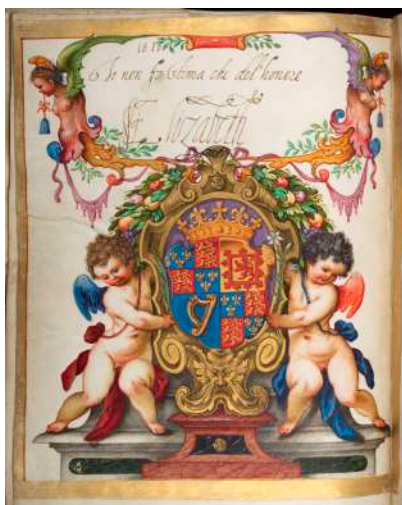 Io non fo stima che del honore
Elizabeth